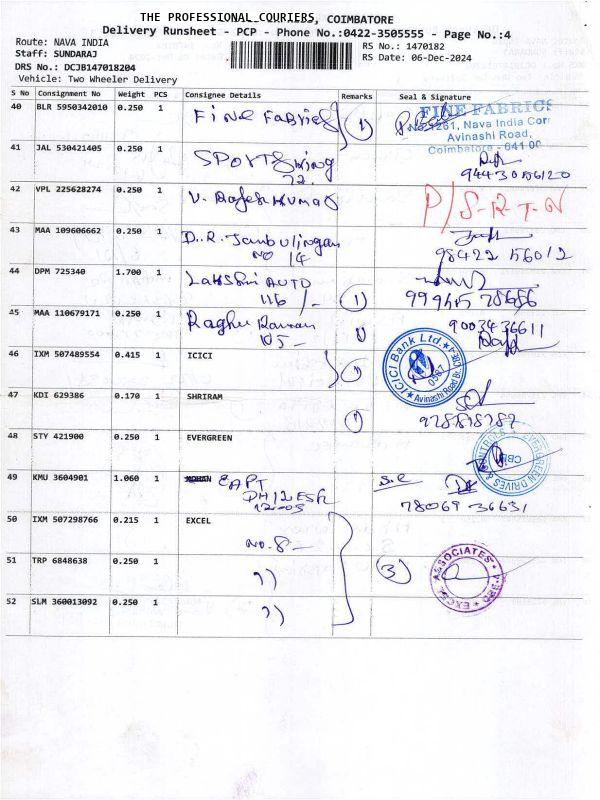 THE PROFESSIONAL COURIERS, COIMBATORE
Delivery Runsheet - PCP - Phone No.:0422-3505555 - Page No.:4
Route: NAVA INDIA
RS No.: 1470182
Staff: SUNDARAJ
RS Date: 06-Dec-2024
DRS No.: DCJB147018204
Vehicle: Two Wheeler Delivery
S No Consignment No Weight PCS Consignee Details Remarks Seal & Signature
40 BLR 5950342010 0.250 1 Fine Fabrics 1 FINE FABRICS
No.1261, Nava India Cor
Avinashi Road,
Coimbatore - 641 00
41 JAL 530421405 0.250 1 SPORTSwing
72.
42 VPL 225628274 0.250 1 V. Rajesh Kumar P/S-R-T-N
43 MAA 109606662 0.250 1 D.R. Jambulingan
NO 14 98422 56012
44 DPM 725340 1.700 1 Lakshmi AUTO
116 /- 1
45 MAA 110679171 0.250 1 Raghu Raman 1) 9003436611
46 IXM 507489554 0.415 1 ICICI 1 ICICI Bank Ltd Avinashi Road
47 KDI 629386 0.170 1 SHRIRAM 1
48 STY 421900 0.250 1 EVERGREEN EVERGREEN DRIVES & CONTROLS CBE
49 KMU 3604901 1.060 1 EAPT
78069 36631
50 IXM 507298766 0.215 1 EXCEL
NO. 8-
51 TRP 6848638 0.250 1 ") 3 EXCEL ASSOCIATES
52 SLM 360013092 0.250 1 ")